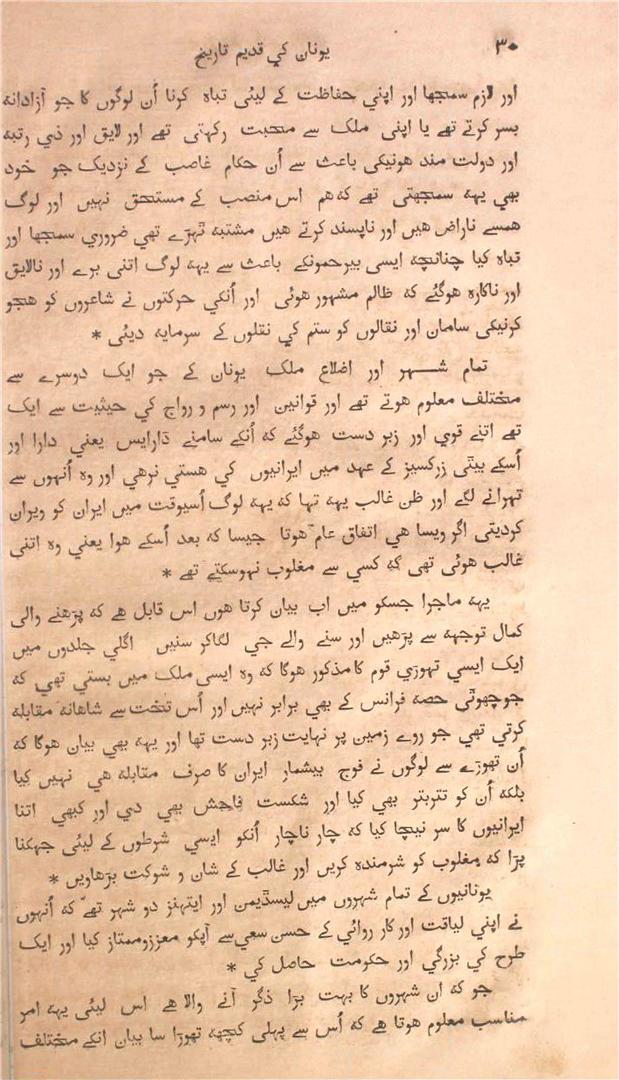 ۳۰
یونان کي قدیم تاریخ
اور لازم سمجھا اور اپني حفاظت کے لیئی تباہ کرنا اُن لوگوں کا جو آزادانه
بسر کرتے تھے یا اپنی ملک سے محبت رکہتی تھے اور لایق اور ذي رتبه
اور دولت مند هونیکی باعث سے اُن حکام غاصب کے نزدیک جو خود
بھي یہہ سمجھتی تھے که هم اس منصب کے مستحق نہیں اور لوگ
همسے ناراض هیں اور ناپسند کرتے هیں مشتبه ٹہرے تهي ضروري سمجھا اور
تباہ کیا چنانچه ایسی بیرحمونکے باعث سے یہه لوگ اتنی برے اور نالایق
اور ناکارہ هوگئے که ظالم مشہور هوئی اور اُنکي حرکتوں نے شاعروں کو هجو
کرنیکی سامان اور نقالوں کو ستم کي نقلوں کے سرمایه دیئی *
تمام شہر اور اضلاع ملک یونان کے جو ایک دوسرے سے
مختلف معلوم هوتے تھے اور قوانین اور رسم و رواج کي حیثیت سے ایک
تھے اتنے قوي اور زبر دست هوگئے که اُنکے سامنے ڈارایس یعني دارا اور
اُسکے بیٹی زرکسیز کے عہد میں ایرانیوں کي هستي نرهي اور وہ اُنہوں سے
تہرانے لگے اور ظن غالب یہه تہا که یہه لوگ اُسیوقت میں ایران کو ویران
کردیتی اگر ویسا هي اتفاق عام هوتا جیسا که بعد اُسکے هوا یعني وہ اتنی
غالب هوئی تھی که کسي سے مغلوب نہوسکتے تھے *
یہه ماجرا جسکو میں اب بیان کرتا هوں اس قابل هے که پڑهنے والی
کمال توجہه سے پڑهیں اور سنے والے جي لگاکر سنیں اگلي جلدوں میں
ایک ایسي تہوڑي قوم کا مذکور هوگا که وہ ایسی ملک میں بستي تهي که
جو چھوٹی حصه فرانس کے بھی برابر نہیں اور اُس تخت سے شاهانه مقابله
کرتي تھي جو روے زمین پر نہایت زبر دست تھا اور یہه بهي بیان هوگا که
اُن تھوڑے سے لوگوں نے فوج بیشمار ایران کا صرف مقابله هي نہیں کیا
بلکه اُن کو تتربتر بھي کیا اور شکست فاحش بھي دي اور کبھي اتنا
ایرانیوں کا سر نیچا کیا که چار ناچار اُنکو ایسي شرطوں کے لیئی جہکنا
پڑا که مغلوب کو شرمندہ کریں اور غالب کے شان و شوکت بڑهاویں *
یونانیوں کے تمام شہروں میں لیسڈیمن اور ایتہنز دو شہر تھے که اُنہوں
نے اپني لیاقت اور کار روائي کے حسن سعي سے آپکو معزز و ممتاز کیا اور ایک
طرح کي بزرگي اور حکومت حاصل کي *
جو که ان شہروں کا بہت بڑا ذکر آنے والا هے اس لیئی یہه امر
مناسب معلوم هوتا هے که اُس سے پہلی کچہه تهوڑا سا بیان انکے مختلف